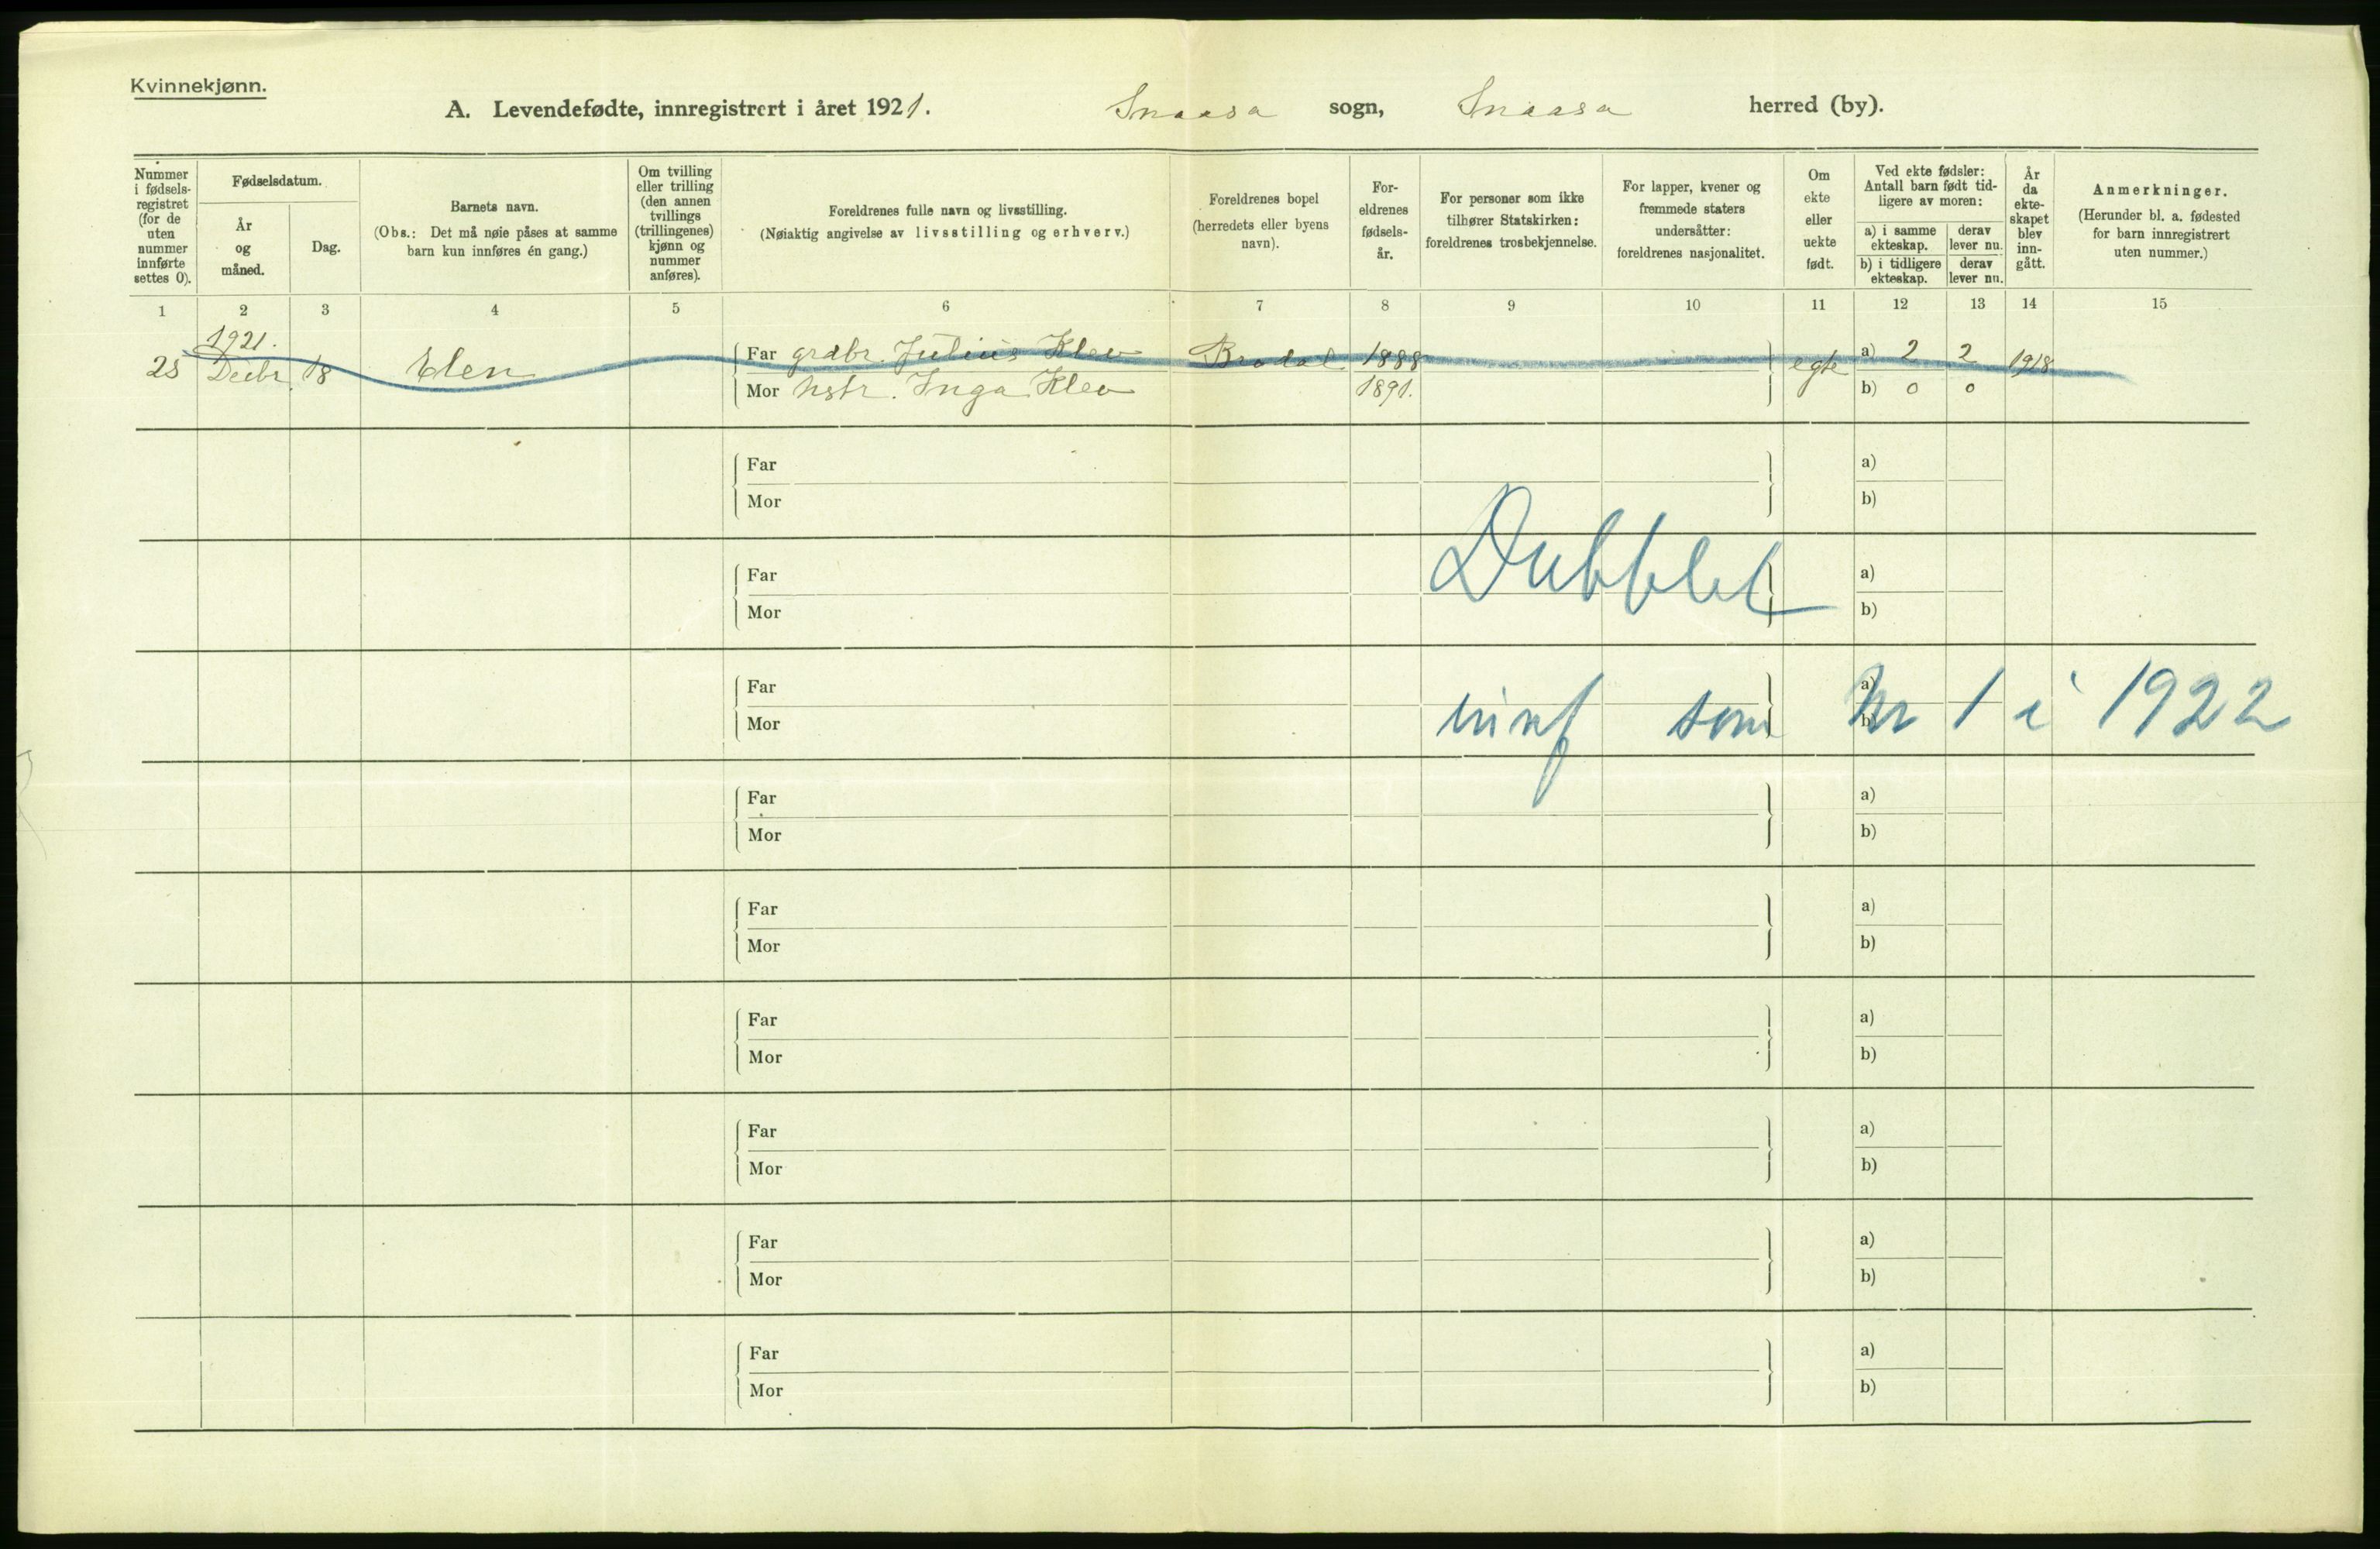 Kvinnekjønn.
A. Levendefødte, innregistrert i året 1921. Snaasa sogn, Snaasa herred (by).
Nummer i fødsels-registret (for de uten nummer innførte settes 0).
Fødselsdatum.
År og måned.
Dag.
Barnets navn.
(Obs.: Det må nøie påses at samme barn kun innføres én gang.)
Om tvilling eller trilling (den annen tvillings (trillingenes) kjønn og nummer anføres).
Foreldrenes fulle navn og livsstilling.
(Nøiaktig angivelse av livsstilling og erhverv.)
Foreldrenes bopel (herredets eller byens navn).
For-eldrenes fødsels-år.
For personer som ikke tilhører Statskirken: foreldrenes trosbekjennelse.
For lapper, kvener og fremmede staters undersåtter: foreldrenes nasjonalitet.
Om ekte eller uekte født.
Ved ekte fødsler: Antall barn født tid-ligere av moren:
a) i samme ekteskap.
derav lever nu.
b) i tidligere ekteskap.
derav lever nu.
År da ekte-skapet blev inn-gått.
Anmerkninger.
(Herunder bl. a. fødested for barn innregistrert uten nummer.)
1 2 3 4 5 6 7 8 9 10 11 12 13 14 15
1921.
25 Decbr. 18 Elen
Far grdbr. Julius Klev Brodal 1888 egte a) 2 2 1918
Mor hstr. Inga Klev 1891. b) 0 0
Far a)
Mor b)
Dubblet
Far a)
Mor b)
Far a)
innf som Nr 1 i 1922
Mor b)
Far a)
Mor b)
Far a)
Mor b)
Far a)
Mor b)
Far a)
Mor b)
Far a)
Mor b)
Far a)
Mor b)